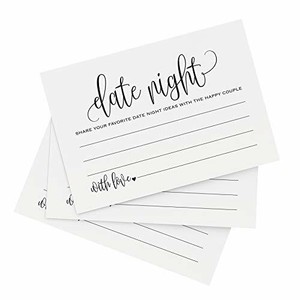 date night
SHARE YOUR FAVORITE DATE NIGHT IDEAS WITH THE HAPPY COUPLE
with love,
with
w